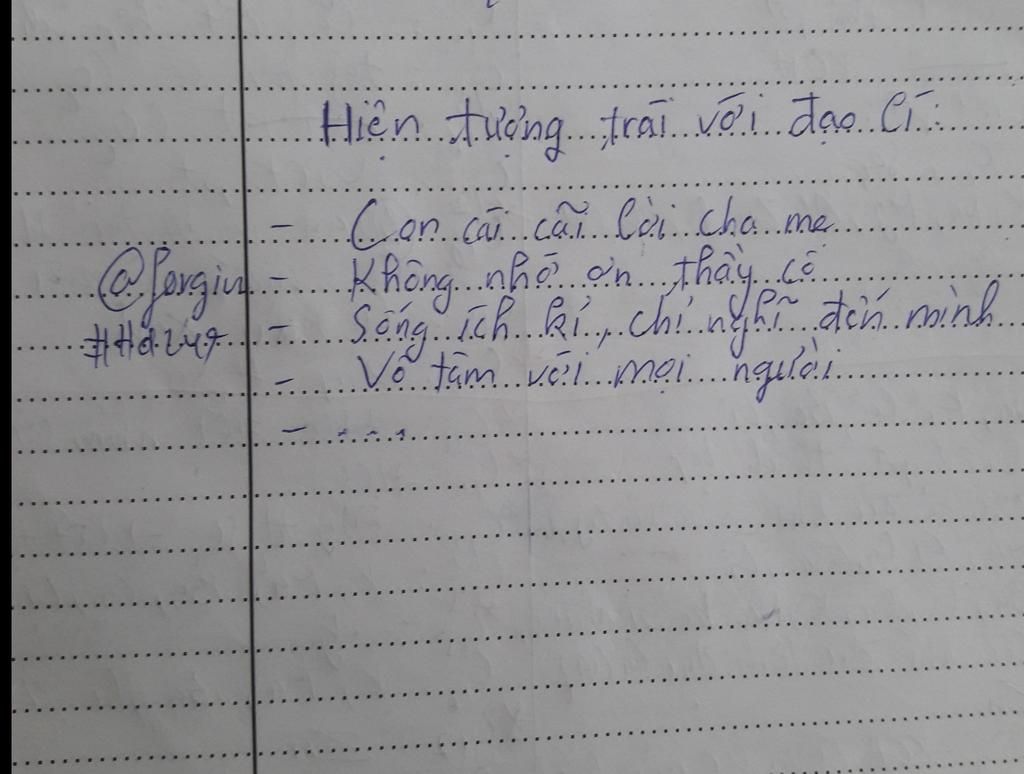 Hiện tượng trái với đạo lí:
- Con cái cãi lời cha mẹ
- Không nhớ ơn thầy cô
- Sống ích kỉ, chỉ nghĩ đến mình
- Vô tâm với mọi người
- ...